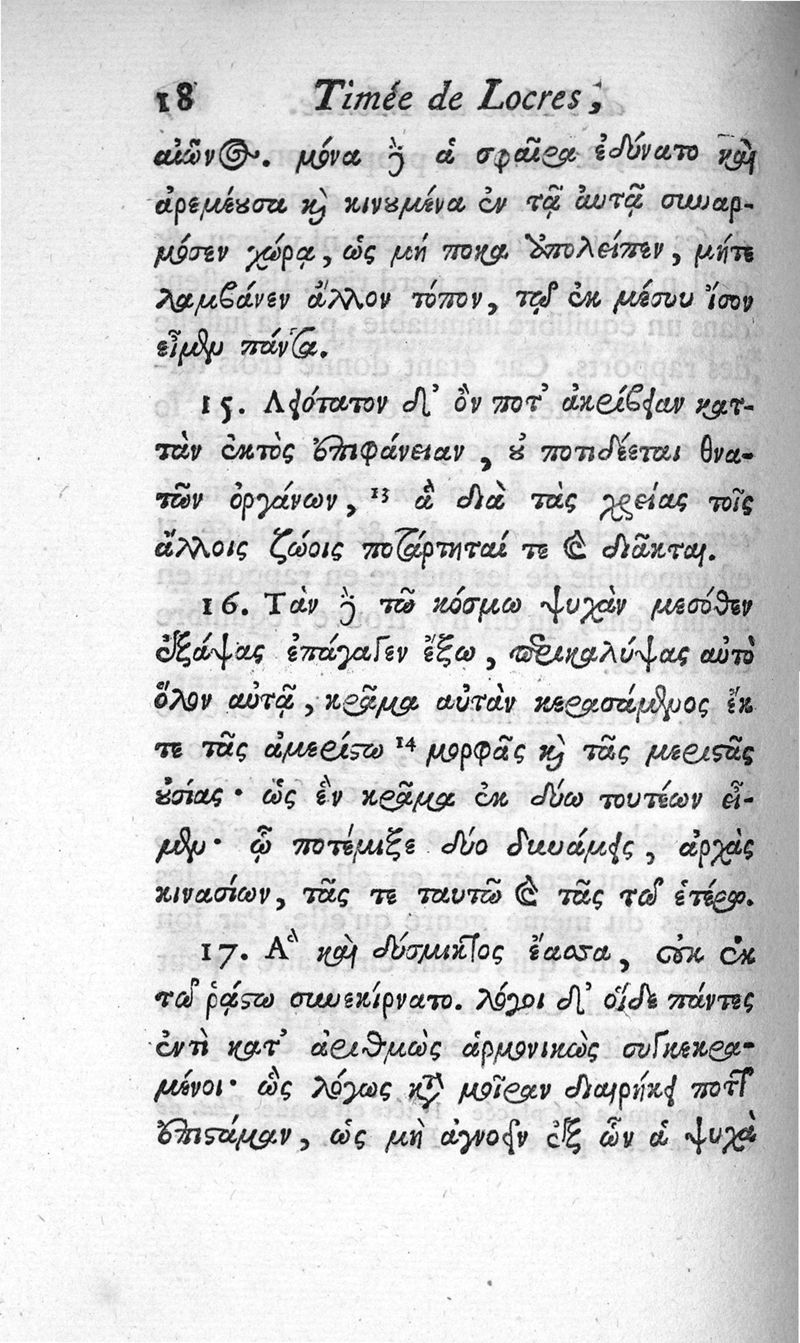 18 Timée de Locres,
αἰῶνος. μόνα δὲ ἁ σφαῖρα ἐδύνατο καὶ
ἀρεμέουσα καὶ κινουμένα ἐν τᾷ ἀυτᾷ συναρ-
μόσεν χώρᾳ, ὡς μή ποκα ἀπολείπεν, μήτε
λαμβάνεν ἄλλον τόπον, τῷ ἐκ μέσου ἴσον
εἶμεν πάντα.
15. Λειότατον δ’ ὂν ποτ’ ἀκρίβειαν κατ-
τὰν ἐκτὸς ἐπιφάνειαν, οὐ ποτιδέεται θνα-
τῶν ὀργάνων, 13 ἃ διὰ τὰς χρείας τοῖς
ἄλλοις ζώοις ποτάρτηταί τε καὶ διᾶκται.
16. Τὰν δὲ τῶ κόσμω ψυχὰν μεσόθεν
ἐξάψας ἐπάγαγεν ἔξω, περικαλύψας αὐτὸ
ὅλον αὐτᾷ, κρᾶμα αὐτὰν κερασάμενος ἔκ
τε τᾶς ἀμερίστω 14 μορφᾶς καὶ τᾶς μεριστᾶς
οὐσίας· ὡς ἓν κρᾶμα ἐκ δύω τουτέων εἶ-
μεν· ᾧ ποτέμιξε δύο δυνάμεις, ἀρχὰς
κινασίων, τᾶς τε ταυτῶ καὶ τᾶς τοῦ ἑτέρου.
17. Ἃ καὶ δύσμικτος ἔασσα, οὐκ ἐκ
τοῦ ῥάστω συνεκίρνατο. λόγοι δ’ οἵδε πάντες
ἐντὶ κατ’ ἀριθμὼς ἁρμονικὼς συγκεκρα-
μένοι· ὣς λόγως κατὰ μοῖραν διαιρήκει ποτ’
ἐπιστάμαν, ὡς μὴ ἀγνοεῖν ἐξ ὧν ἁ ψυχὰ